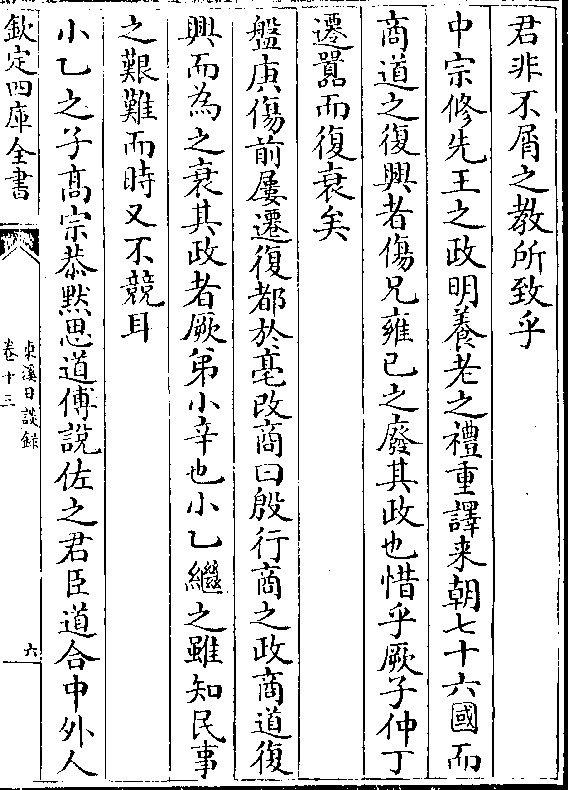 君非不屑之教所致乎
中宗修先王之政明養老之禮重譯来朝七十六國而
商道之復興者傷兄雍已之廢其政也惜乎厥子仲丁
遷囂而復衰矣
盤庚傷前屢遷復都於亳改商曰殷行商之政商道復
興而為之衰其政者厥弟小辛也小乙繼之雖知民事
之艱難而時又不競耳
小乙之子髙宗恭黙思道傅說佐之君臣道合中外人
欽定四庫全書
東溪日談録
卷十三
六